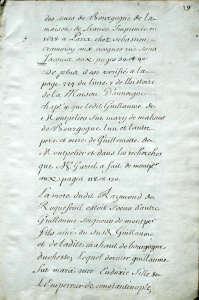 19
des ducs de Bourgogne de la
maison de france Imprimé en
1628 a Paris chez sebastien
Cramoisy aux cicognes rue saint
Jacques aux pages
de plus il est verifié a la
page du livre de l'histoire
de la Maison D'auvergne
que ledit Guillaume de
Montpelier fut mary de mahaut
de Bourgogne l'un et l'autre
pere et mere de Guillemette de
Montpelier et dans les recherches
que Mr. a fait de
aux pages 118 et 120.
La mere dudit Raymond de
Roquefeuil estoit soeur d'autre
Guillaume seigneur de montper
fils ainé du susdit Guillaume
et de ladite mahaut de bourgogne
duchesse, lequel dernier guillaume
fut marié avec Eudoxie fille de
L'Empereur de constantinople,